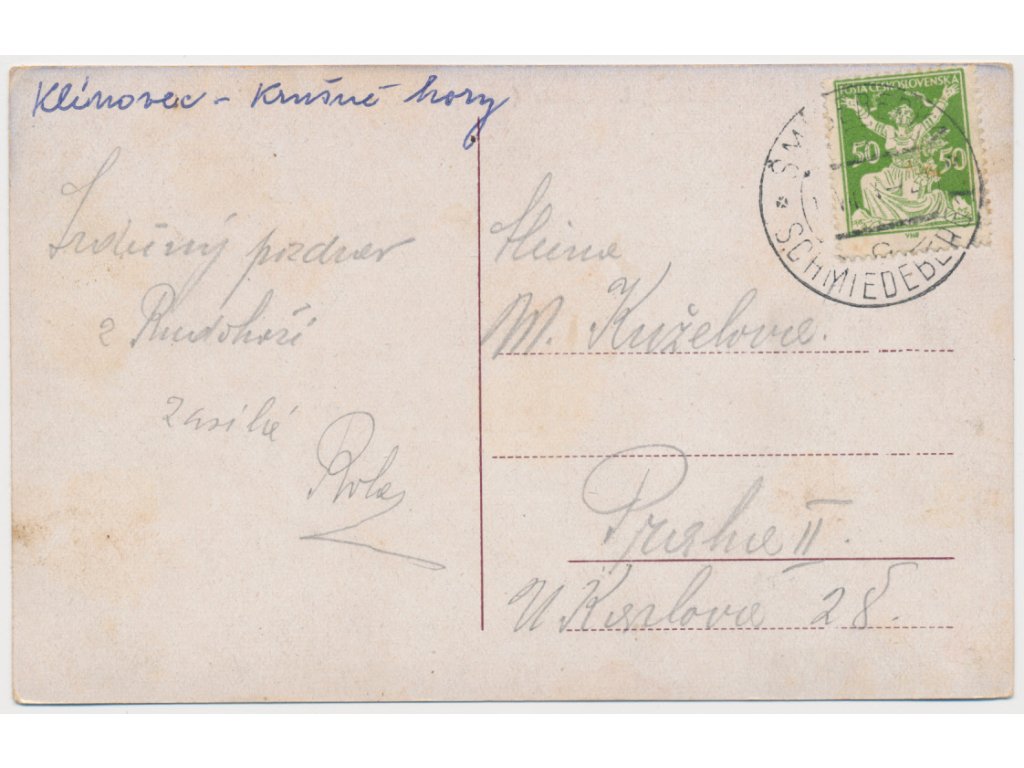 Klínovec - Krušné hory
Srdečný pozdrav
z Rudohoří
zasílá
POŠTA ČESKOSLOVENSKÁ
50 50
SCHMIEDEBERG
W. Kuželova.
Praha II.
U Karlova 28.